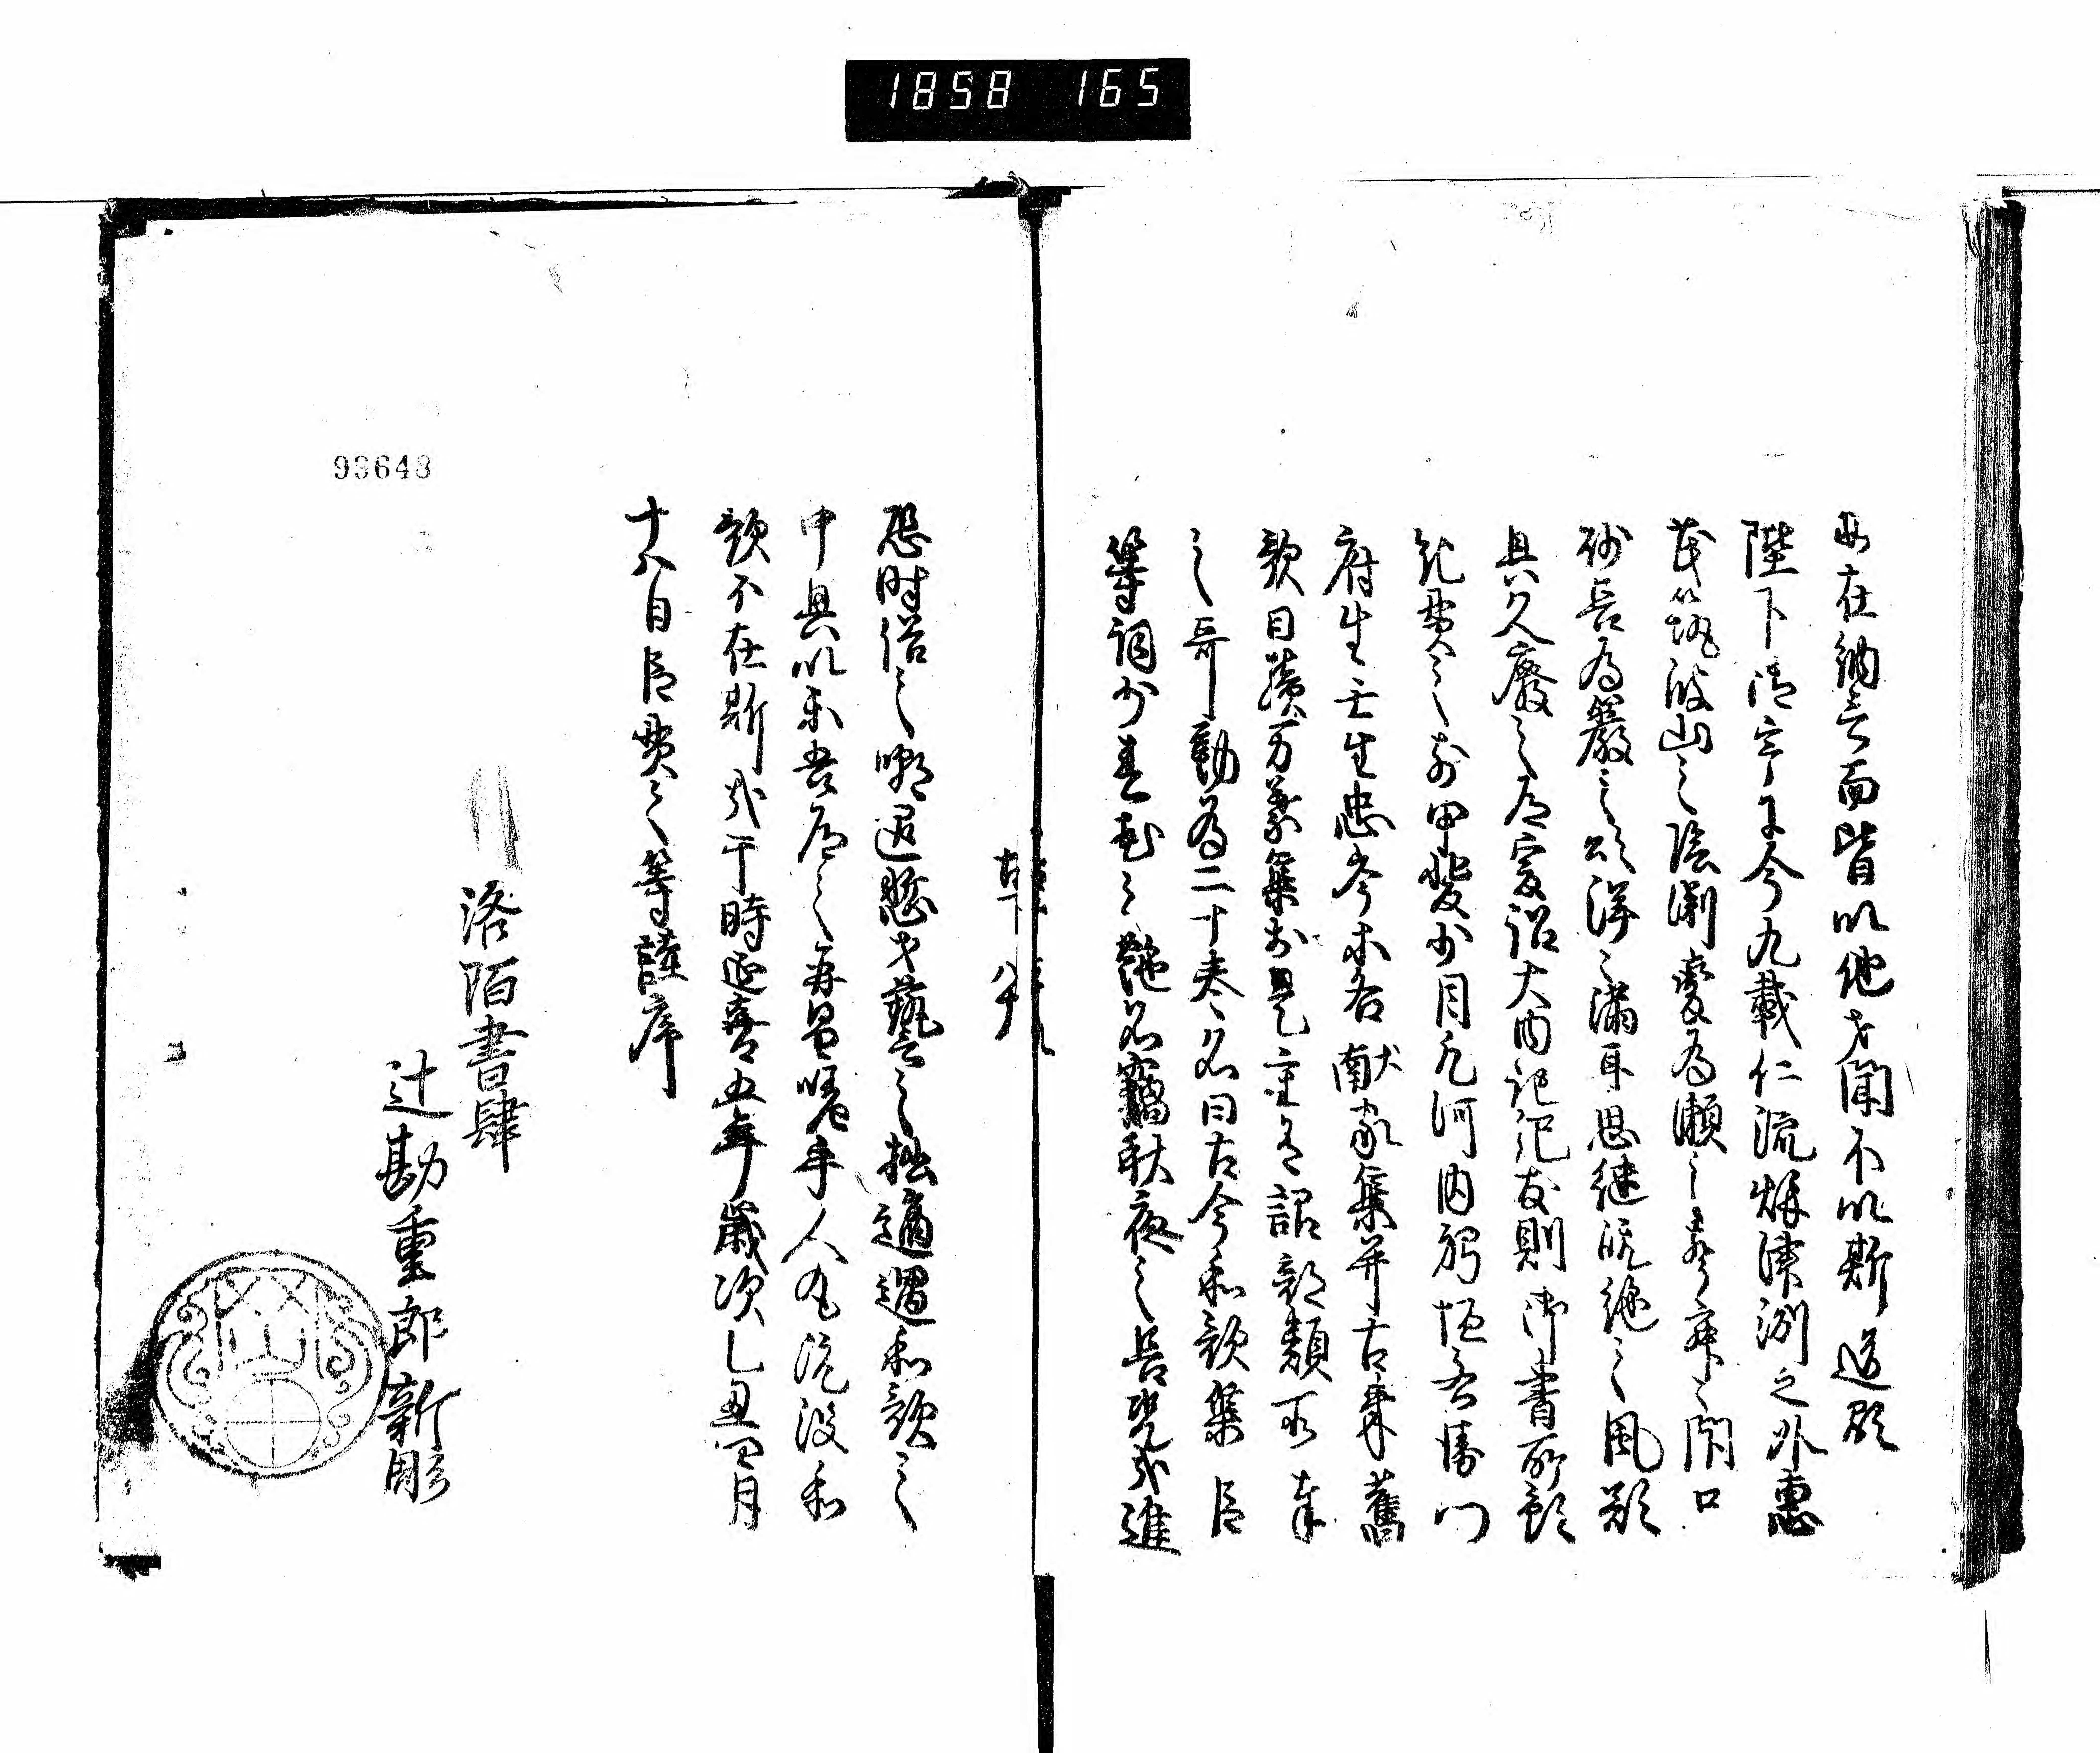 1858 165
相在納言而皆以他才聞不以斯道顕
陛下御宇于今九載仁流秋津洲之外恵
茂筑波山之陰淵変為瀬之声寂々閇口
砂長為巌之頌洋々満耳思継既絶之風欲
興久廃之道爰詔大内記紀友則御書所預
紀貫之前甲斐少目凡河内躬恒右衛門
府生壬生忠岑等各献家集并古来舊
歌曰續万葉集於是重有詔部類所奉
之哥勒為二十巻名曰古今和歌集臣
等詞少春花之艶名竊秋夜之長况哉進
恐時俗之嘲退慙才藝之拙適遇和歌之
中興以楽吾道之再昌嗟乎人丸既没和
歌不在斯哉于時延喜五年歳次乙丑四月
十八日臣貫之等謹序
洛陌書肆
辻勘重郎新彫
93643